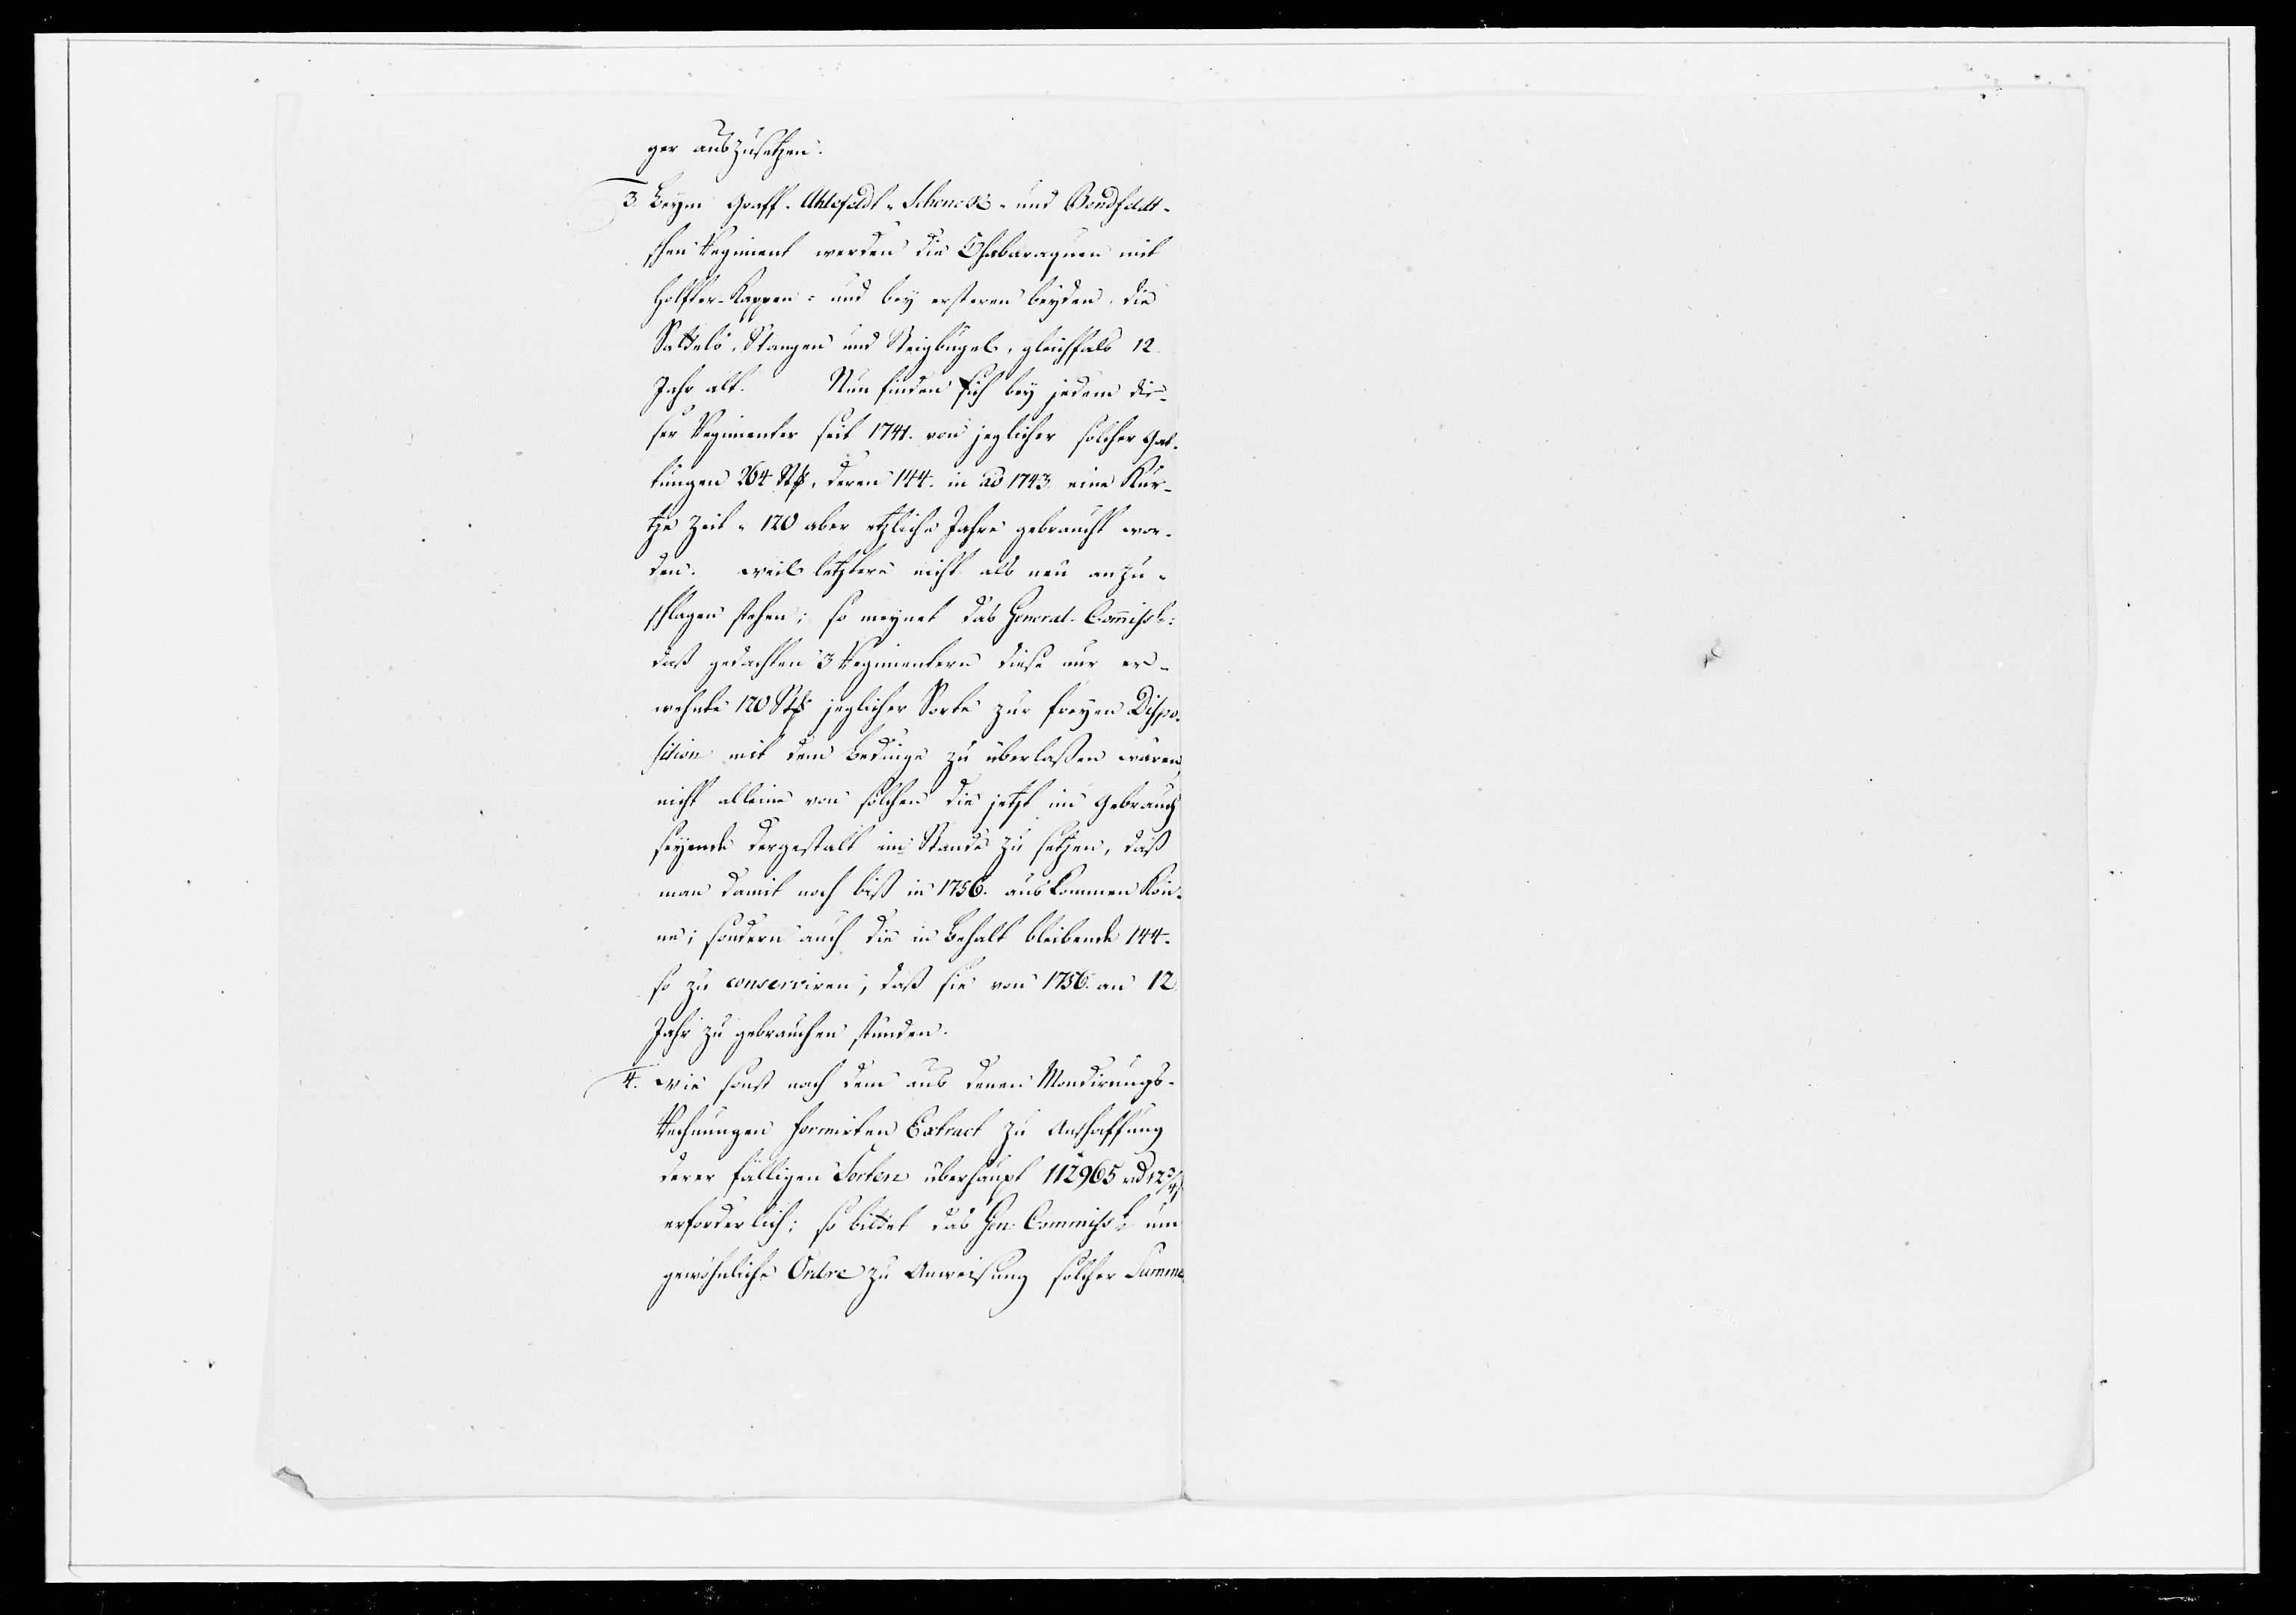 ger auszusetzen.
3. Beym Graff-Ahlefeldt-Schenck- und Bendfeldt-
schen Regiment werden die Chabaraquen mit
Holfter-Kappen- und bey ersteren beyden, die
Sattels, Stangen und Steigbügels, gleichfals 12
Jahr alt. Nun finden sich bey jedem die-
ser Regimenter seit 1741. von jeglicher solcher Gat-
tungen 264 Stk, deren 144. in ao 1743. eine Kur-
tze Zeit- 120 aber etzliche Jahre gebraucht wor-
den. weil letztere nicht als neu anzu-
schlagen stehen; so meynet das General-Commiss:
daß gedachten 3 Regimentern diese nur er-
wehnte 120 Stk jeglicher Sorte zur freyen Dispo-
sition mit dem Bedinge zu überlaßen wären,
nicht alleine von solchen die jetzt im Gebrauch
seyende dergestalt im Stande zu setzen, daß
man damit noch biß in 1756. auskommen kön-
ne; sondern auch die in Behalt bleibende 144.
so zu conserviren, daß sie von 1756. an 12
Jahr zu gebrauchen stünden.
4. Wie sonst nach dem aus denen Mondirungs-
Rechnungen formirten Extract zu Anschaffung
derer fälligen Sorten überhaupt 112965 rd 12 3/4
erforderlich; so bittet das Gen: Commiss um
gewöhnliche Ordre zu Anweisung solcher Summe